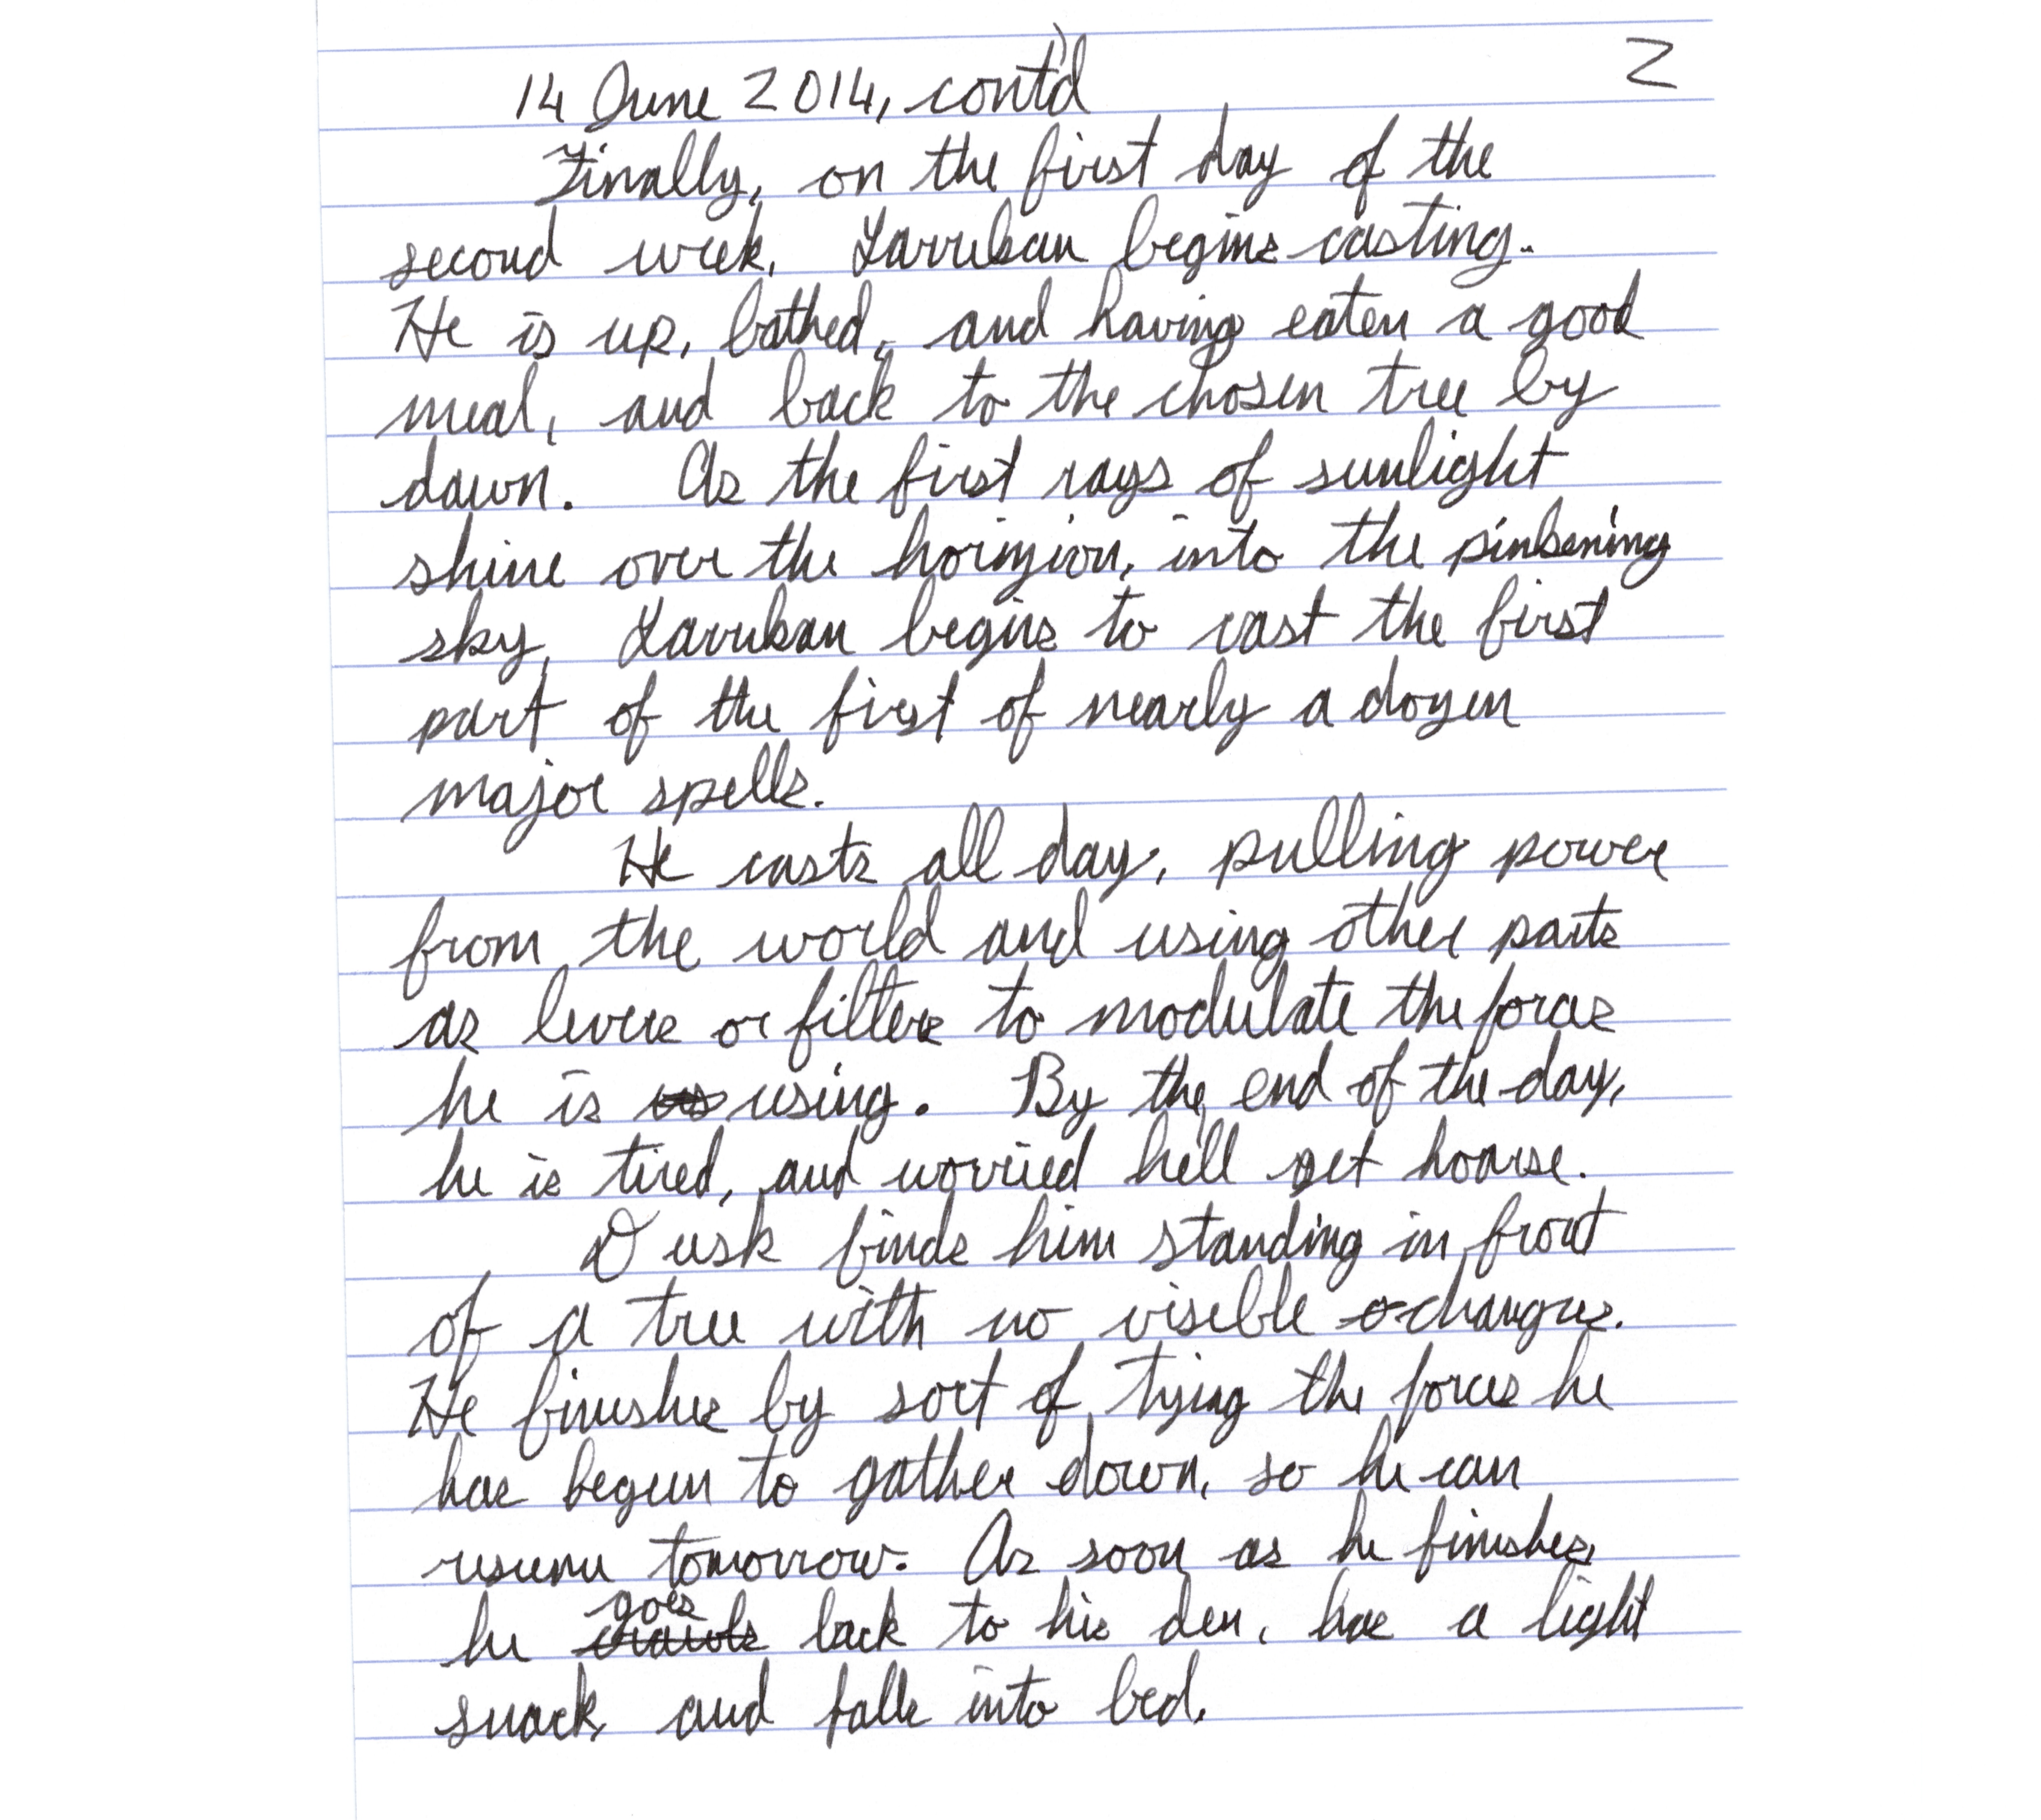 14 June 2014, cont'd 2
Finally, on the first day of the
second week, Larruban begins casting.
He is up, bathed, and having eaten a good
meal, and back to the chosen tree by
dawn. As the first rays of sunlight
shine over the horizion, into the pinkening
sky, Larruban begins to cast the first
part of the first of nearly a dozen
major spells.
He casts all day, pulling power
from the world and using other parts
as levers or filters to modulate the forces
he is using. By the end of the day,
he is tired, and worried he'll get hoarse.
Dusk finds him standing in front
of a tree with no visible changes.
He finishes by sort of tying the forces he
has begun to gather down, so he can
resume tomorrow. As soon as he finishes,
he goes back to his den, has a light
snack, and falls into bed.